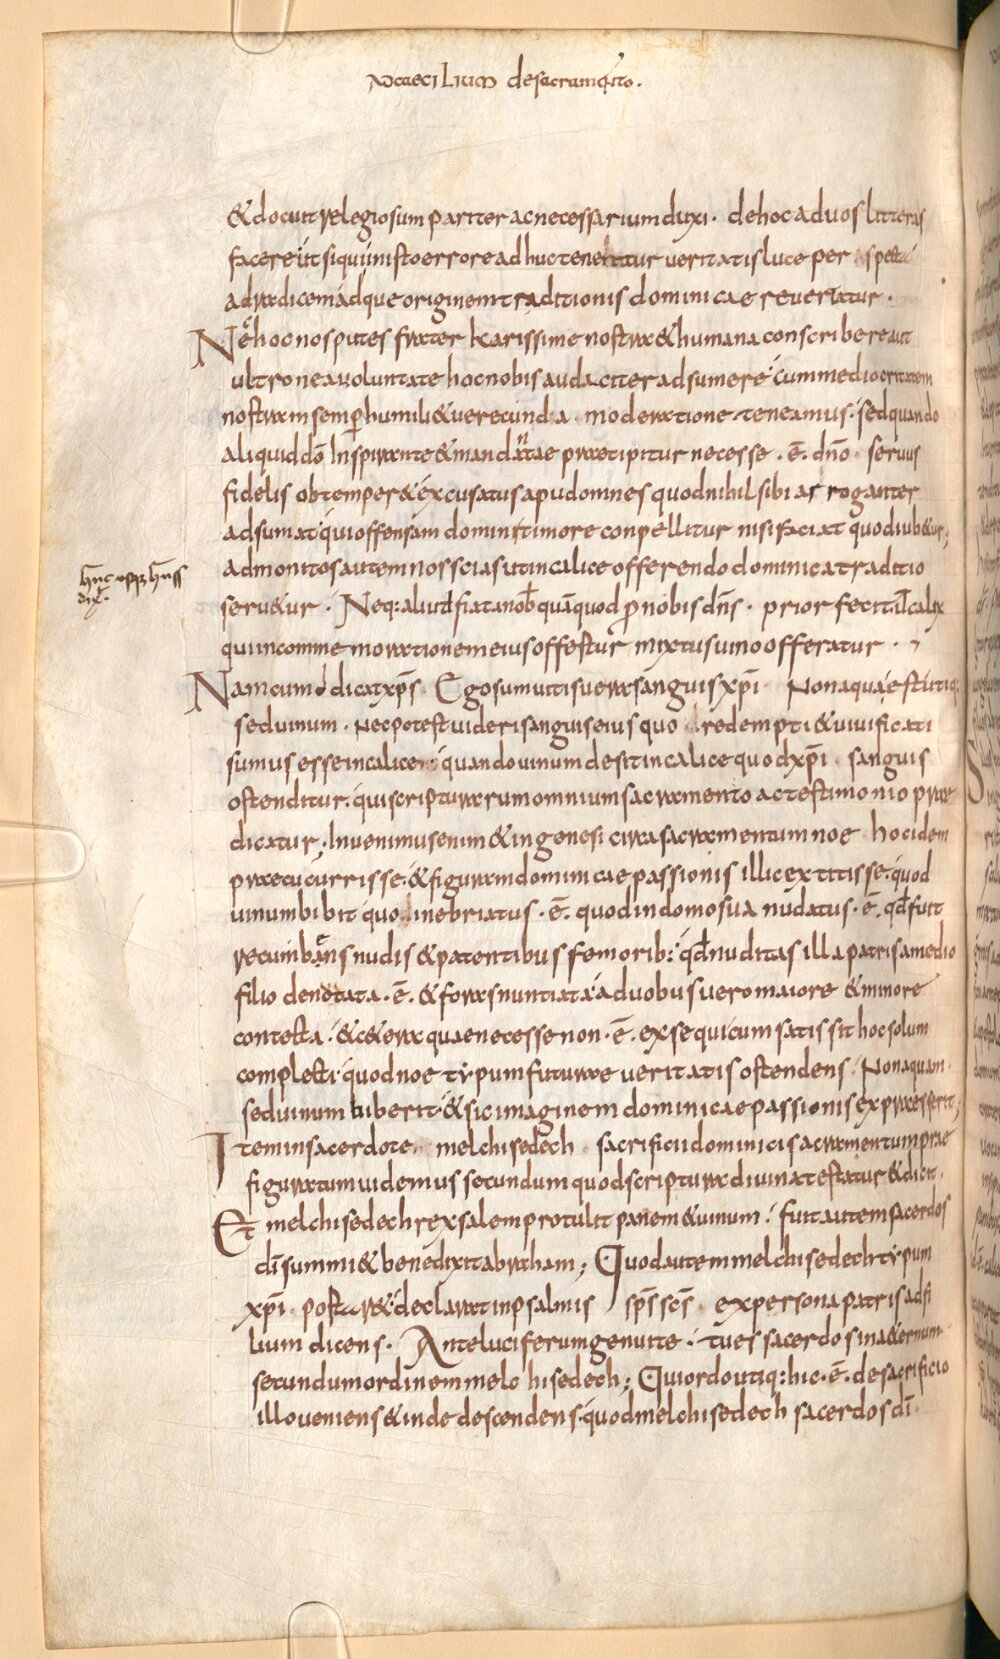 Ad caecilium de sacramento.
& docuit relegiosum pariter ac necessarium duxi. de hoc ad uos litteras
facere ut siqui in isto errore adhuc tenetur ueritatis luce perspecta
ad radicem adque originem traditionis dominicae reuertatur.
Ne hoc nos putes frater karissime nostra & humana conscribere aut
ultronea uoluntate hoc nobis audaciter adsumere cum mediocritatem
nostram semp humili & uerecunda moderatione teneamus. sed quando
aliquid dō Inspirante & mandante praecipitur necesse .ē. dnō seruus
fidelis obtemper& excusatus apud omnes quod nihil sibi arroganter
adsumat qui offensam domini timore conpellitur nisi faciat quod iub&ur;
admonitos autem nos scias ut in calice offerendo dominica traditio
seru&ur. Neq: aliud fiat a nob quā quod p nobis dn̄s. prior fecit ut calix
hunc
dix
qui in commemorationem eius offertur mixtus uino offeratur.
Nam cum dicat xp̄s. Ego sum uitis uera sanguis xp̄i. Non aqua est utiq:
sed uinum. Nec potest uideri sanguis eius quo redempti & uiuificati
sumus esse in calice quando uinum desit in calice quod xp̄i. sanguis
ostenditur. qui scripturarum omnium sacramento ac testimonio prae
dicatur; Inuenimus enim & in genesi circa sacramentum noe hoc idem
praecucurrisse. & figuram dominicae passionis illic extitisse. quod
uinum bibit quod inebriatus .ē. quod in domo sua nudatus .ē. qd̄ fuit
recumbans nudis & patentibus femorib: qd̄ nuditas illa patris a medio
filio denotata .ē. & foras nuntiata a duobus uero maiore & minore
contecta. & c&era quae necesse non .ē. exsequi cum satis sit hoc solum
complecti quod noe typum futurae ueritatis ostendens. Non aquam
sed uinum biberit & sic imaginem dominicae passionis expraesserit;
Item in sacerdote melchisedech sacrificii dominici sacramentum prae
figuratum uidemus secundum quod scriptura diuina testatur & dicit.
Et melchisedech rex salem protulit panem & uinum. fuit autem sacerdos
dī summi & benedixit abraham; Quod autem melchisedech typum
xp̄i. portaret declarat in psalmis sp̄s sc̄s. ex persona patris ad fi
lium dicens. Ante luciferum genui te. tu es sacerdos in a&ernum
secundum ordinem melchisedech; Qui ordo utiq: hic .ē. de sacrificio
illo ueniens & inde descendens. quod melchisedech sacerdos dī.